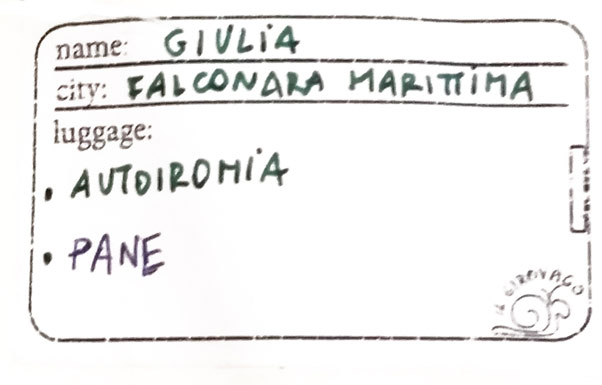 name: GIULIA
city: FALCONARA MARITTIMA
luggage:
• AUTOIROMIA
• PANE
IL GIROVAGO